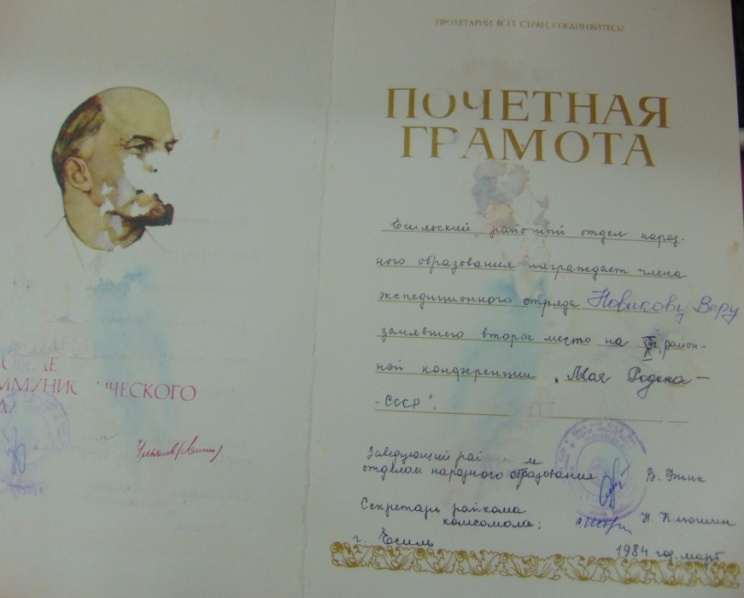 ПРОЛЕТАРИИ ВСЕХ СТРАН, СОЕДИНЯЙТЕСЬ!
ПОЧЕТНАЯ
ГРАМОТА
Есильский районный отдел народ-
ного образования награждает члена
экспедиционного отряда Новикову Веру
занявшего второе место на район-
ной конференции „Моя Родина —
- СССР".
Заведующий рай м
отделом народного образования В.
Секретарь райкома
комсомола: Н.
г. Есиль 1984 год. март
ММУНИС ИЧЕСКОГО
Ульянов (Ленин)